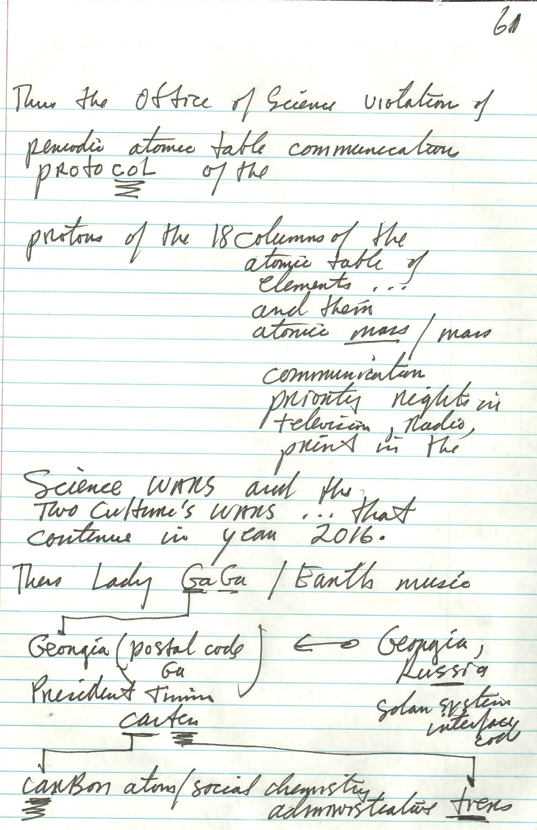 61
Thus the Office of Science violation of
periodic atomic table communication
protocol of the
protons of the 18 columns of the
atomic table of
elements ...
and them
atomic mass / mass
communication
priority rights in
television, radio,
print in the
Science WARS and the
Two Culture's WARS ... that
continue in year 2016.
Thus Lady GaGa / Earth music
Georgia (postal code
Ga
Georgia,
Russia
President Jimmy
Carter
solar system
interface
code
carBon atom/social chemistry
administrative trees